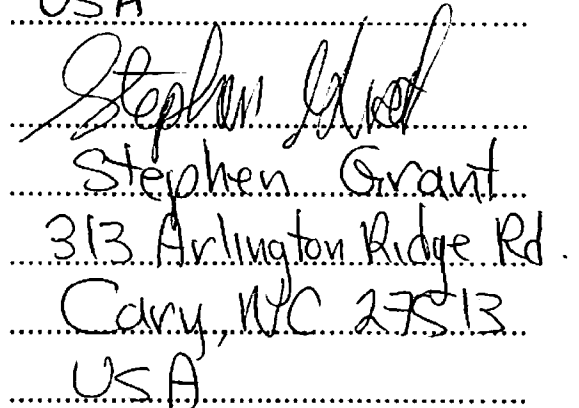 USA
Stephen Grant
Stephen Grant
313 Arlington Ridge Rd.
Cary, NC 27513
USA